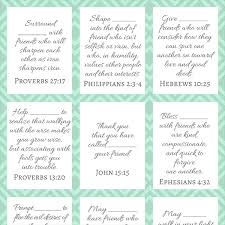 Surround ____
with
friends who will
sharpen each
other as iron
sharpens iron.
PROVERBS 27:17
Shape ____
into the kind of
friend who isn't
selfish or vain, but
who in humility
values other people
and their interests
PHILIPPIANS 2:3-4
Give ____
friends who will
consider how they
can spur one
another on toward
love and good
deeds.
HEBREWS 10:25
Help ____ to
realize that walking
with the wise makes
you grow wise,
but associating with
fools gets you
into trouble.
PROVERBS 13:20
Thank you
that you have
called ____
your friend.
JOHN 15:15
Bless ____
with friends who
are kind,
compassionate,
and quick to
forgive one
another.
EPHESIANS 4:32
Prompt ____ to
May ____
have friends who
May ____
walk in your light